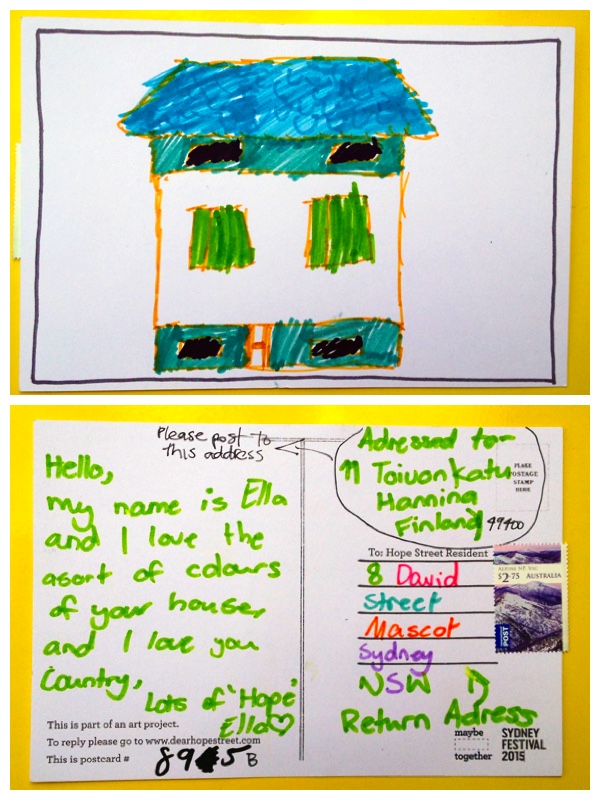 Please post to
this address
Hello,
my name is Ella
and I love the
asort of colours
of your house,
and I love you
Country,
Lots of 'Hope'
Ella
This is part of an art project.
To reply please go to www.dearhopestreet.com
This is postcard # 8945 B
Adressed to-
11 Toivonkatu
Hamina
Finland 49400
PLACE
POSTAGE
STAMP
HERE
To: Hope Street Resident
8 David
Street
Mascot
Sydney
NSW
Return Adress
ALPINE NP, VIC
$2.75 AUSTRALIA
POST
maybe
together
SYDNEY
FESTIVAL
2015